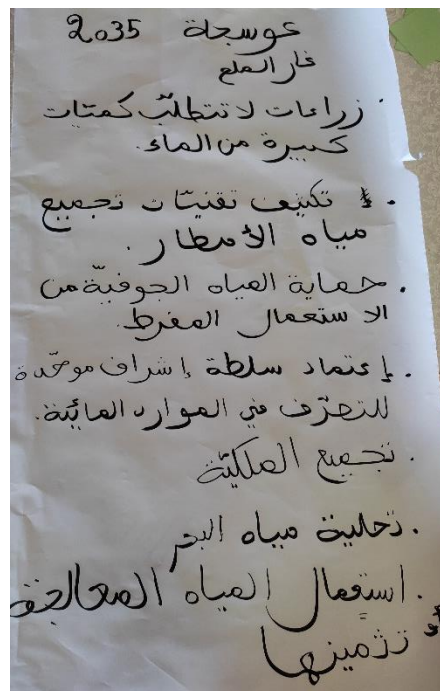 عوسجة 2035
غار الملح
. زراعات لا تتطلب كميّات
كبيرة من الماء.
. تكثيف تقنيّات تجميع
مياه الأمطار.
. حماية المياه الجوفيّة من
الاستعمال المفرط.
. إعتماد سلطة إشراف موحّدة
للتصرّف في الموارد المائيّة.
. تجميع الملكيّة
. تحلية مياه البحر
. استعمال المياه المعالجة
و تثمينها